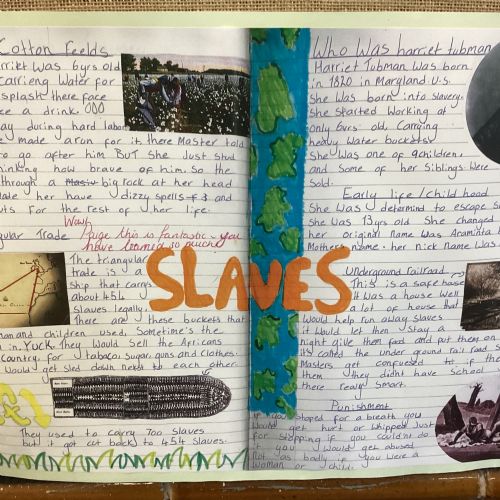 Cotton feelds
Harriet was 6yrs old
Carrieng water for
splash there face
a drink.
day during hard labor
made a run for it there Master told
to go after him BUT she Just stud
thinking how brave of him. So the
through a big rock at her head
made her have dizzy spells
outs For the rest of her life.
Wow! Paige this is fantastic - you
have learned so much!
Trade
The triangular
trade is a
ship that carrys
about 454
slaves legally.
There are these buckets that
and children used. Sometime's the
in. YUCK. They Would Sell the Africans
Country for tabaco, sugar, guns and clothes.
Would get sled down next to each other
They used to Carry 700 slaves
but it got cut back to 454 slaves.
SLAVES
Who Was harriet tubman
Harriet Tubman was born
in 1820 in Maryland U.S.
She was born into slavery.
She started working at
only 6yrs old, Carrying
heavy water buckets.
She was one of 9 children
and some of her siblings were
sold.
Early life/child hood
She was determind to escape
She was 13yrs old She changed
her original name was Araminta
Mothers name. her nick Name was
Underground railroad
This is a safe house
It was a house well
a lot of house that
Would help run away slaves
it would let then stay a
night give them food and put them on
It's called the under ground rail road
Masters get confuesed
them they didnt have School
there really Smart.
Punishment
if you stoped for a breath you
would get hurt or whipped Just
for stopping if you couldn't do
it you would get abused
Not as badly if you were a
woman or child.